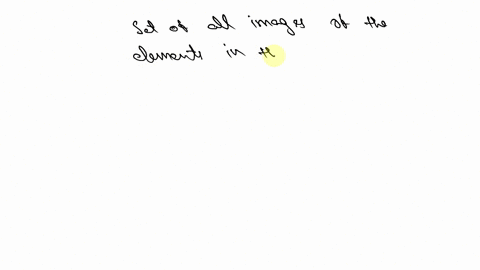 Set of all images of the
elements in th